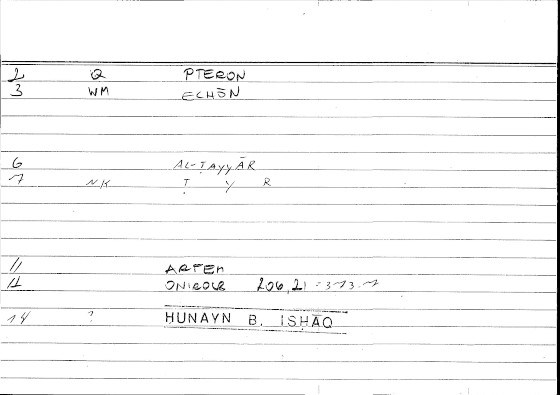 2 Q PTERON
3 WM ECHŌN
6 AL-ṬAYYĀR
7 NK Ṭ Y R
11 ARTEM
12 ONIROCR 206,21 = 373.7
14 ? HUNAYN B. ISḤĀQ